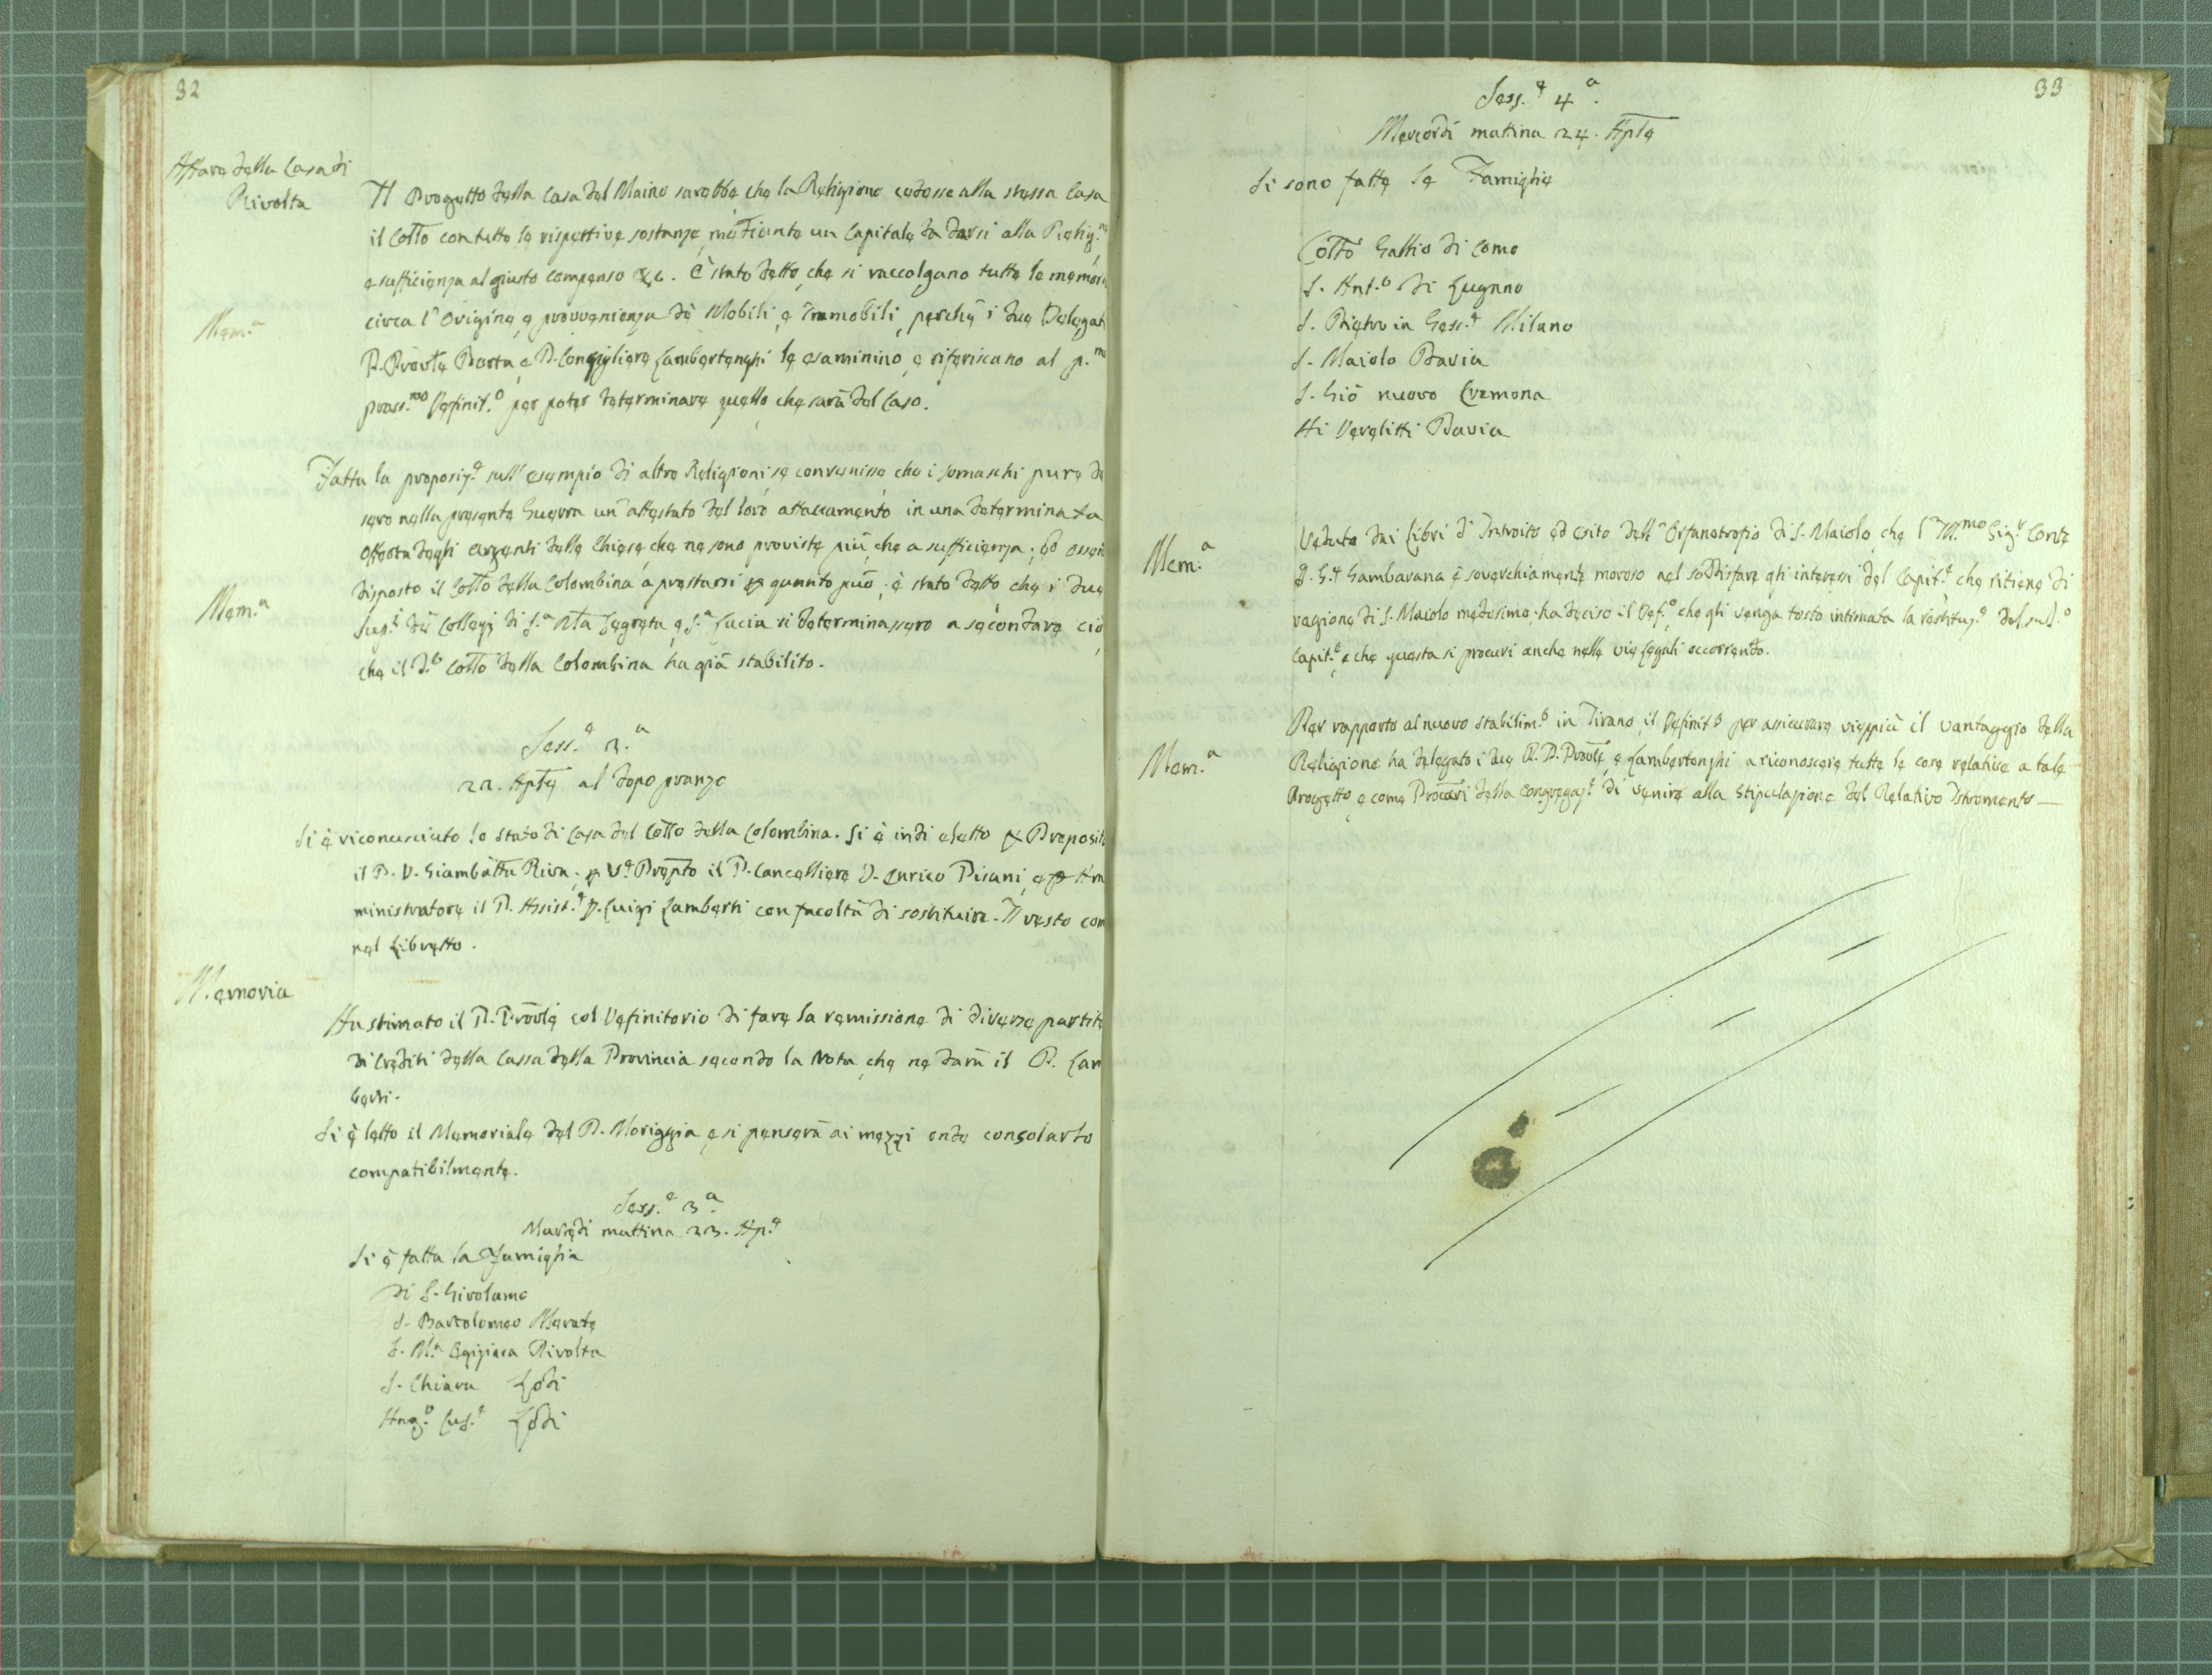 32
Affare della Casa di
Rivolta
Il Progetto della Casa del Maino sarebbe che la Religione cedesse alla stessa Casa
il Collo con tutte le rispettive sostanze, mediante un Capitale da darsi alla Relig.ne
a sufficienza al giusto compenso &c. È stato detto, che si raccolgano tutte le memori
Mem.a
circa l'Origine, e provvenienza de' Mobili, e Immobili, perchè i due Delegati
P. Provle Porta, e P. Consigliere Lambertenghi le esaminino, e riferiscano al p.mo
pross.mo Definit.o per poter determinare quello che sarà del Caso.
Fatta la proposiz.e sull'esempio di altre Religioni se convenisse che i Somaschi pure de
sero nella presente Guerra un'attestato del loro attaccamento in una determinata
Offerta degli argenti delle Chiese, che ne sono proviste più che a sufficienza; ed essen
disposto il Collo della Colombina a prestarsi p quanto può; è stato detto che i due
Mem.a
Sup.i dei Collegj di S.a Ma Segreta, e S.a Lucia si determinassero a secondare ciò,
che il d.o Collo della Colombina ha già stabilito.
Sess.e 3.a
22. Aple al dopo pranzo
Si è riconosciuto lo stato di Casa del Collo della Colombina. Si è indi eletto p Preposit
il P. D. Giambatta Riva; p Ve Prepto il P. Cancelliere D. Enrico Pisani, e p Am
ministratore il P. Assist.e D. Luigi Lamberti con facoltà di sostituire. Il resto com
nel Libretto.
Memoria
Ha stimato il P. Provle col Definitorio di fare la remissione di diverse partite
di Crediti della Cassa della Provincia secondo la Nota, che ne darà il P. Lam
berti.
Si è letto il Memoriale del P. Moriggia, e si penserà ai mezzi onde consolarlo
compatibilmente.
Sess.e 3.a
Martedi mattina 23. Ap.e
Si è fatta la Famiglia
di S. Girolamo
S. Bartolomeo Merate
S. M.a Egiziaca Rivolta
S. Chiara Lodi
Ang.o Cus.e Lodi
33
Sess.e 4.a
Mercordi mattina 24. Aple
Si sono fatte le Famiglie
Collo Gallio di Como
S. Ant.o di Lugano
S. Pietro in Gess.e Milano
S. Maiolo Pavia
S. Gio nuovo Cremona
Ai Derelitti Pavia
Mem.a
Veduto dai Libri d'Introito ed esito dell'Orfanotrofio di S. Maiolo, che l'Ill.mo Sig.r Conte
D. G. Gambarana è soverchiamente moroso nel soddisfare gli interessi del Capit.e che ritiene di
ragione di S. Maiolo medesimo; ha deciso il Def.o, che gli venga tosto intimata la restituz.e del sud.o
Capit.e, e che questa si procuri anche nelle vie Legali occorrendo.
Mem.a
Per rapporto al nuovo stabilim.o in Tirano, il Definit.o per assicurare vieppiù il vantaggio della
Religione ha delegato i due R. P. Provle, e Lambertenghi a riconoscere tutte le cose relative a tale
Progetto, e come Procuri della Congregaz.e di venire alla Stipulazione del Relativo Istromento —